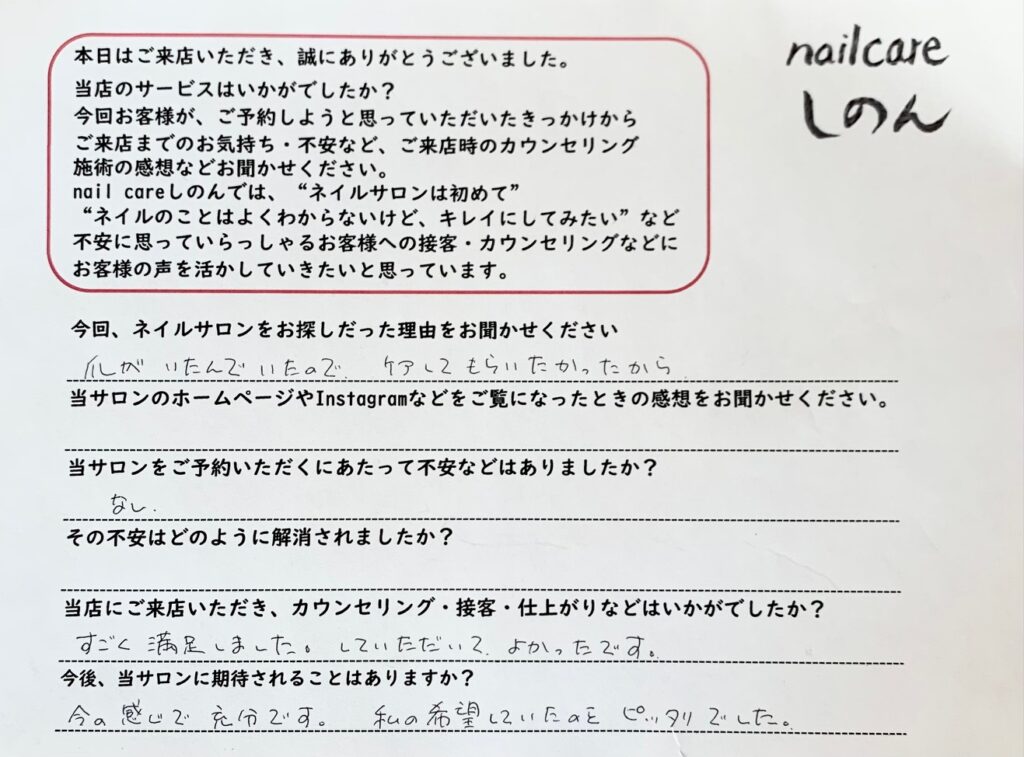 nailcare
しのん
本日はご来店いただき、誠にありがとうございました。
当店のサービスはいかがでしたか？
今回お客様が、ご予約しようと思っていただいたきっかけから
ご来店までのお気持ち・不安など、ご来店時のカウンセリング
施術の感想などお聞かせください。
nail careしのんでは、“ネイルサロンは初めて”
“ネイルのことはよくわからないけど、キレイにしてみたい”など
不安に思っていらっしゃるお客様への接客・カウンセリングなどに
お客様の声を活かしていきたいと思っています。
今回、ネイルサロンをお探しだった理由をお聞かせください
爪がいたんでいたので、ケアしてもらいたかったから
当サロンのホームページやInstagramなどをご覧になったときの感想をお聞かせください。
当サロンをご予約いただくにあたって不安などはありましたか？
なし.
その不安はどのように解消されましたか？
当店にご来店いただき、カウンセリング・接客・仕上がりなどはいかがでしたか？
すごく満足しました。していただいて、よかったです。
今後、当サロンに期待されることはありますか？
今の感じで充分です。 私の希望していたのとピッタリでした。